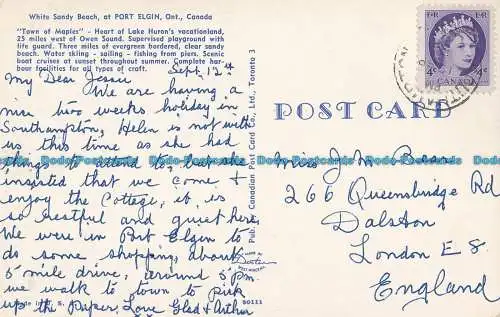 White Sandy Beach, at PORT ELGIN, Ont., Canada
"Town of Maples" - Heart of Lake Huron's vacationland,
25 miles west of Owen Sound. Supervised playground with
life guard. Three miles of evergreen bordered, clear sandy
beach. Water skiing - sailing - fishing from piers. Scenic
boat cruiser at sunset throughout summer. Complete har-
bour facilities for all types of craft.
Sept 12th
My Dear Jessie
We are having a
nice two weeks holiday in
Southampton, Helen is not with
us this time as she had
things to attend to, but she
insisted that we come &
enjoy the Cottage, it is
so restful and quiet here,
We were in Port Elgin to
do some shopping, about
5 mile drive, around 5 pm
we walk to town to pick
up the Paper, Love Glad & Arthur
Made in U. S. A.
80111
Pub. Canadian Post Card Co., Ltd., Toronto 3
POST CARD
CANADA
4¢
4¢
Miss J M
266 Queensbridge Rd
Dalston
London E8.
England
Dodo-Postcards Dodo-Postcards Dodo-Postcards Dodo-Postcards